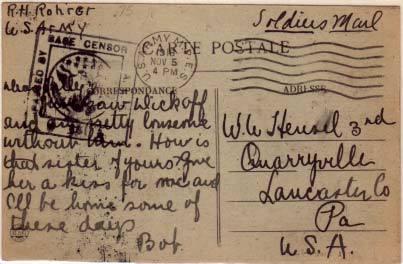 R.H Rohrer
U.S ARMY
Soldiers Mail
PASSED BY
BASE CENSOR
U.S. ARMY M.P.E.S.
NOV 5
4 PM
CARTE POSTALE
CORRESPONDANCE
ADRESSE
saw Wickoff
and am pretty lonesome
without him. How is
that sister of yours give
her a kiss for me and
I'll be home some of
these days
Bob
W. W Hensel 3rd
Quarryville
Lancaster Co
Pa
U.S.A.